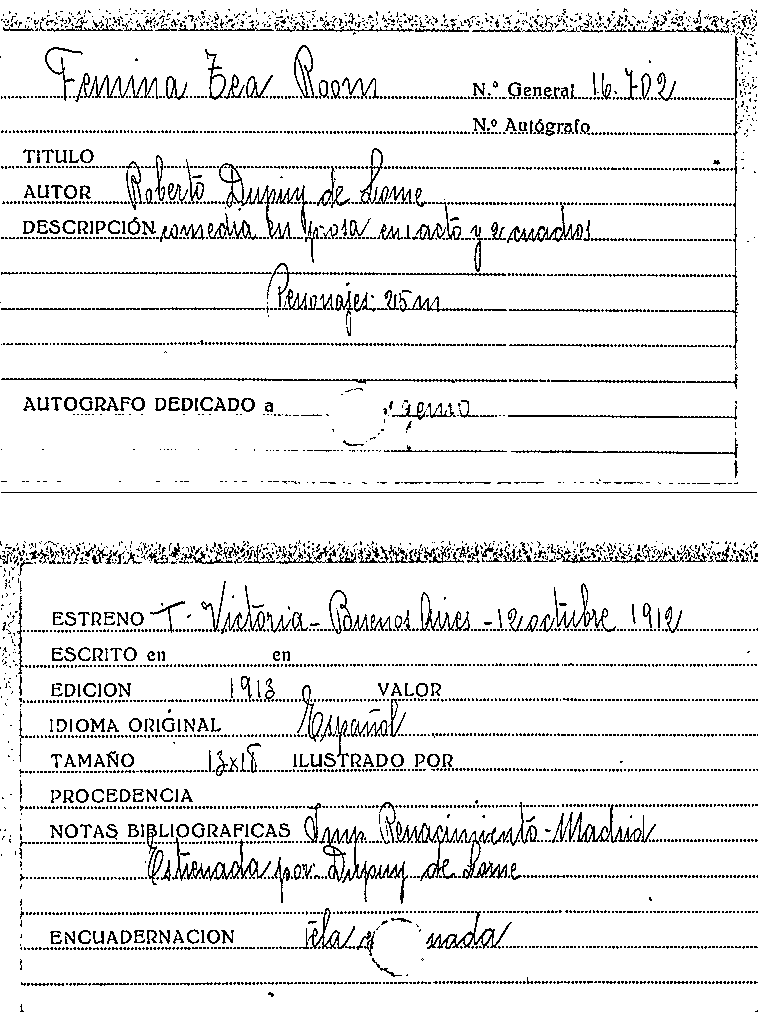 Femina Tea Room
N.º General 16.702
N.º Autógrafo
TITULO
AUTOR Roberto Dupuy de Lome
DESCRIPCIÓN comedia en prosa en 1 acto y 2 cuadros
Personajes: 25 m
AUTOGRAFO DEDICADO a
ESTRENO T. Victoria - Buenos Aires - 12 octubre 1912
ESCRITO en en
EDICION 1913 VALOR
IDIOMA ORIGINAL Español
TAMAÑO 13x18 ILUSTRADO POR
PROCEDENCIA
NOTAS BIBLIOGRAFICAS Imp Renacimiento - Madrid
Estrenada por: Dupuy de Lome
ENCUADERNACION tela